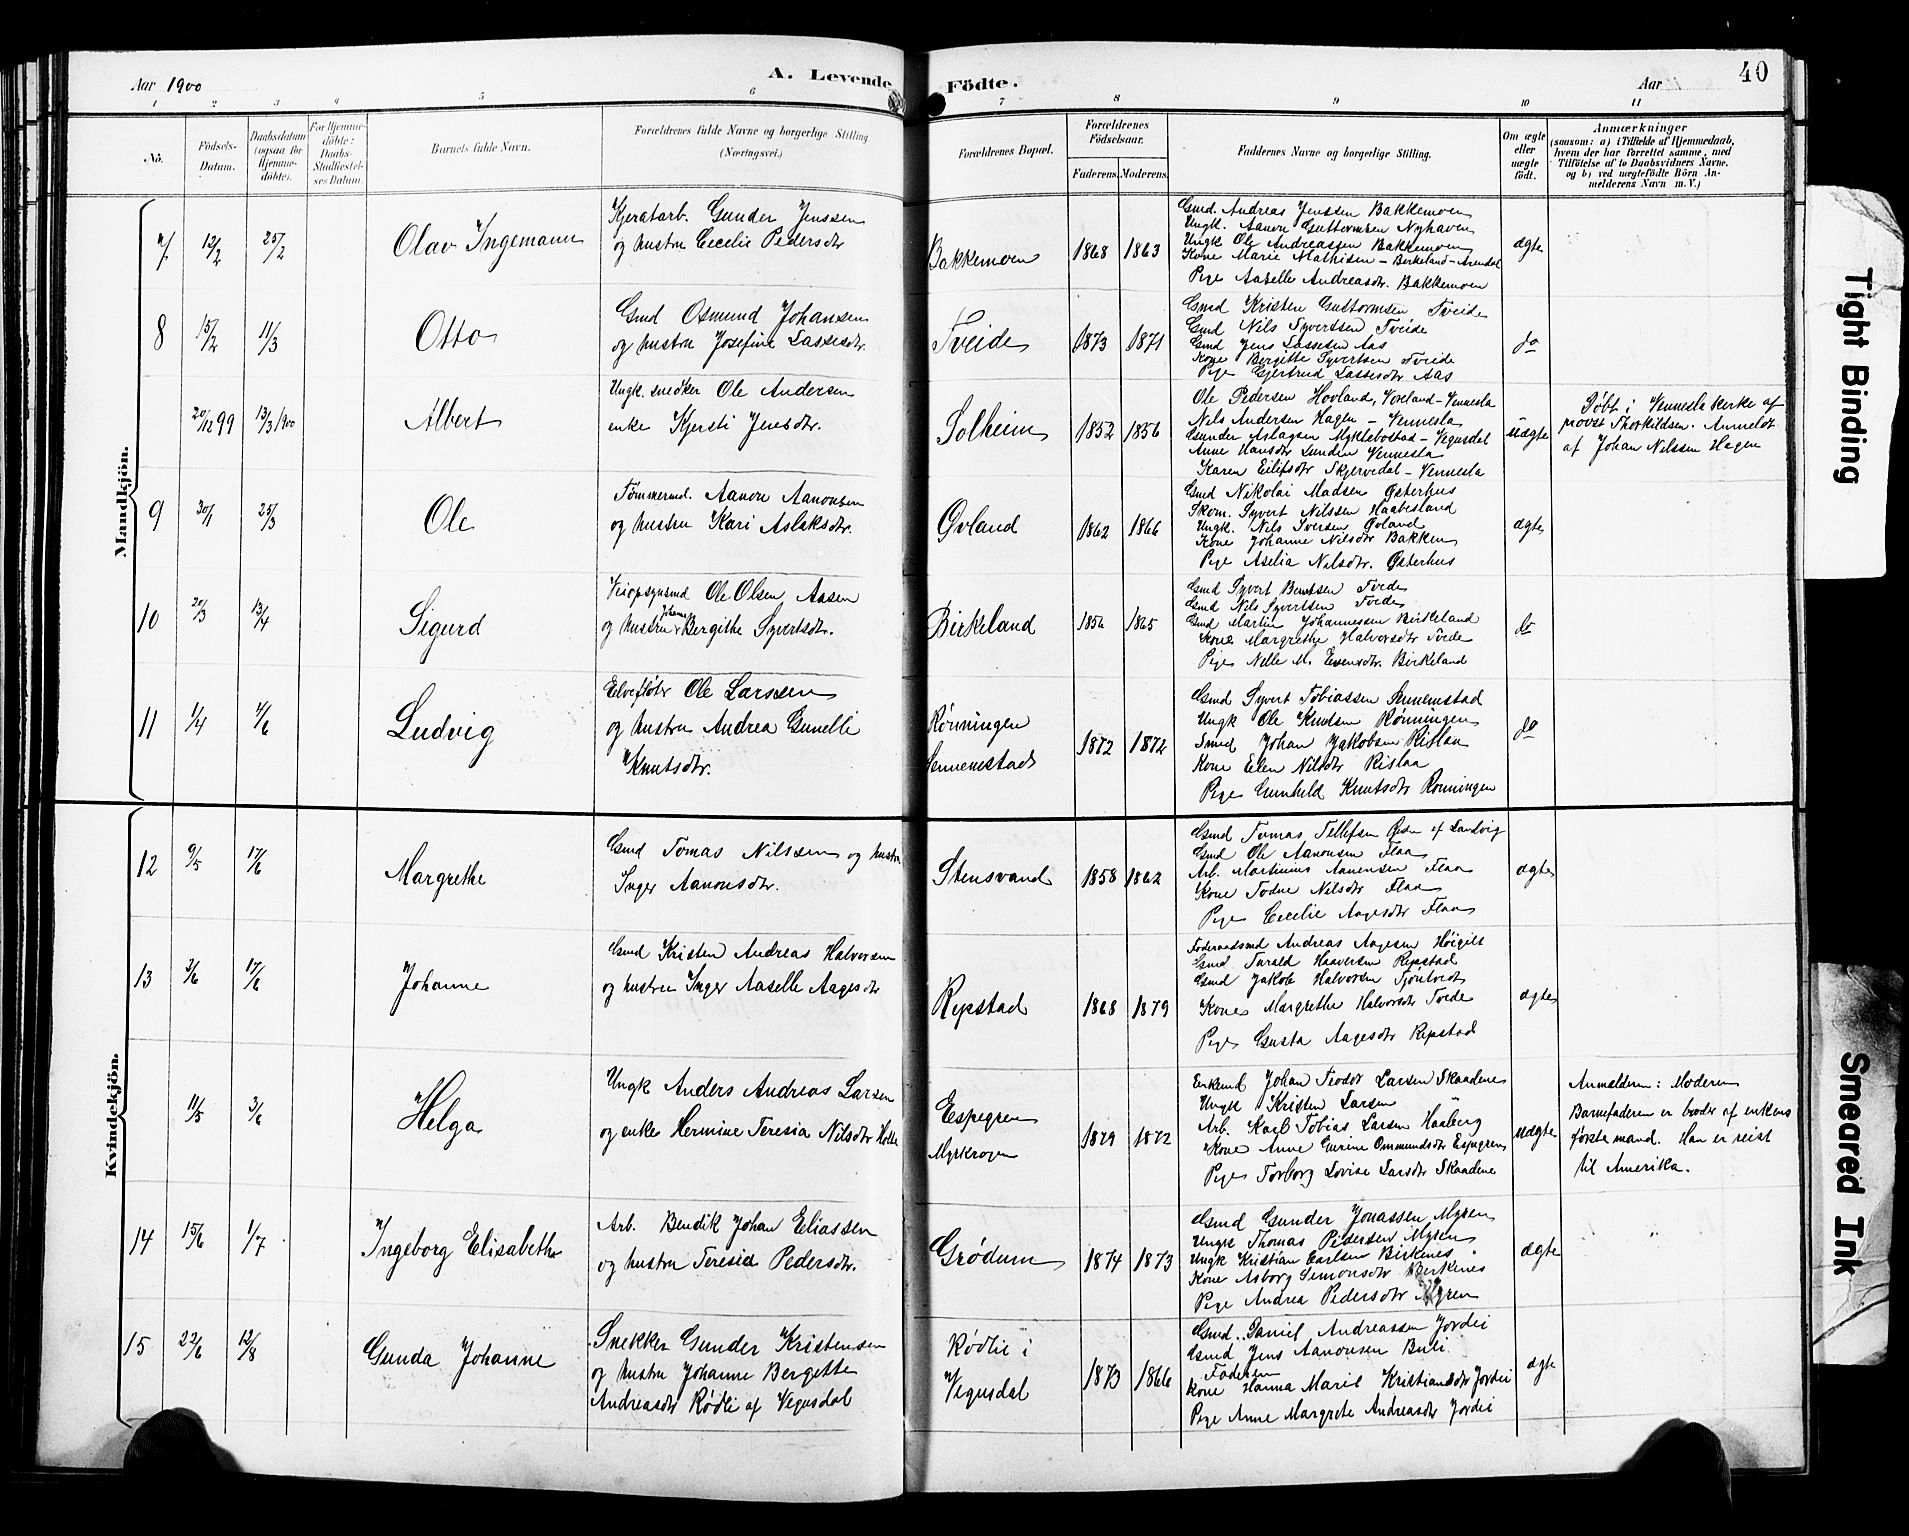 Aar 1900
A. Levende
Födte.
Aar
40
1 2 3 4 5 6 7 8 9 10 11
No.
Födsels-
Datum.
Daabsdatum
(ogsaa for
Hjemme-
döbte).
For Hjemme-
döbte:
Daabs-
Stadfæstel-
ses Datum.
Barnets fulde Navn.
Forældrenes fulde Navne og borgerlige Stilling
(Næringsvei.)
Forældrenes Bopæl.
Forældrenes
Födselsaar.
Faderens. Moderens.
Faddernes Navne og borgerlige Stilling.
Om ægte
eller
uægte
födt.
Anmærkninger
(saasom: a) i Tilfælde af Hjemmedaab,
hvem der har forrettet samme, med
Tilföielse af to Daabsvidners Navne.
og b) ved uægtefödte Börn An-
melderens Navn m. V.)
Mandkjön.
7 12/2 25/2 Olav Ingemann
Kjøratarb. Gunder Jenssen
og hustru Cecelie Pedersdtr
Bakkemoen 1868 1863
Gmd. Andreas Jenssen Bakkemoen
Ungk. Aanon Guttormsen Nyhaven
Ungk Ole Andreassen Bakkemoen
Kone Marie Mathisen – Birkeland – Arendal
Pige Aaselle Andreasdtr. Bakkemoen
ægte
8 15/2 11/3 Otto
Gmd Osmund Johansen
og hustru Josefine Lassesdtr.
Tveide 1873 1871
Gmd Kristen Guttormsen Tveide
Gmd Nils Syvertsen Tveide
Gmd Jens Lassesen Aas
Kone Bergitte Syvertsen Tveide
Pige Gjertrud Lassesdtr Aas
do
20/12 99 13/3 1900 Albert
Ungk. snedker Ole Andersen
enke Kjersti Jensdtr.
Solheim 1852 1856
Ole Pedersen Hovland, Voreland – Vennesla
Nils Andersen Hagen – Vennesla
Gunder Aslagsen Myklebostad – Vegusdal
Anne Hansdtr Lunden Vennesla
Karen Eilifsdtr Skjervedal – Vennesla
uægte
Døbt i Vennesla kirke af
provst Thorkildsen. Anmeldt
af Johan Nilssen Hagen
9 30/1 25/3 Ole
Tømmermd. Aanon Aanonsen
og hustru Kari Aslaksdtr.
Øvland 1862 1866
Gmd Nikolai Madsen Østerhus
Skom. Syvert Nilssen Haabesland
Ungk. Nils Iversen Øvland
Kone Johanne Nilsdtr Bakken
Pige Aselia Nilsdtr. Østerhus
ægte
10 20/3 13/4 Sigurd
Veiopsynsmd Ole Olsen Aasen
og hustru Johanne Bergithe Syvertsdtr.
Birkeland 1856 1865
Gmd Syvert Berntsen Tveide
Gmd Nils Syvertsen Tveide
Gmd Martin Johannessen Birkeland
Kone Margrethe Halvorsdtr Tveide
Pige Nelle M. Evensdtr. Birkeland
do
11 1/4 4/6 Ludvig
Elvefløter Ole Larssen
og hustru Andrea Gunelle
Knutsdtr.
Rønningen
Sennemstad 1872 1872
Gmd Syvert Tobiassen Sennemstad
Ungk Ole Knutsen Rønningen
Smed Johan Jakobsen Rislaa
Kone Elen Nilsdtr Rislaa
Pige Gunhild Knutsdtr Rønningen
do
Kvindekjön.
12 9/5 17/6 Margrethe
Gmd Tomas Nilssen og hustru
Inger Aanonsdtr.
Stensvand 1858 1862
Gmd Tomas Tellefsen
Gmd Ole Aanonsen Flaa
Arb. Martinius Aanensen Flaa
Kone Todne Nilsdtr Flaa
Pige Cecilie Aagesdtr Flaa
ægte
13 3/6 17/6 Johanne
Gmd Kristen Andreas Halvorsen
og hustru Inger Aaselle Aagesdtr
Repstad 1868 1879
Foderaadsmd Andreas Aagesen Høigilt
Gmd Tarald Haaversen Repstad
Gmd Jakob Halvorsen Tjøntvedt
Kone Margrethe Halvorsdtr Tvede
Pige Gusta Aagesdtr Repstad
ægte
11/5 3/6 Helga
Ungk Anders Andreas Larsen
og enke Hermine Teresia Nilsdtr Holte
Espegren
Myrkrogen 1879 1872
Enkemd Johan Teodor Larsen Skaadene
Ungk Kristen Larsen
Arb. Karl Tobias Larsen Haaberg
Kone Anne Gurine Ommundsdtr Espegren
Pige Torborg Lovise Larsdtr Skaadene
uægte
Anmelderen: Moderen
Barnefaderen er broder af enkens
første mand. Han er reist
til Amerika.
14 15/6 1/7 Ingeborg Elisabethe
Arb. Bendik Johan Eliassen
og hustru Teresia Pedersdtr.
Grødum 1874 1873
Gmd Gunder Jonassen Myren
Ungk Thomas Pedersen Myren
Ungk Kristian Carlsen Birkenes
Kone Asborg Simonsdtr Birkenes
Pige Andrea Pedersdtr Myren
ægte
15 22/6 12/8 Gunda Johanne
Snekker Gunder Kristensen
og hustru Johanne Bergitte
Andreasdtr Rødli af Vegusdal
Rødlie i
Vegusdal 1873 1866
Gmd. Daniel Andreassen Jordei
Gmd Jens Aanonsen Buli
Faderen
Kone Hanna Marie Kristiansdtr Jordei
Pige Anne Margrete Andreasdtr Jordei
ægte
Tight Binding
Smeared Ink